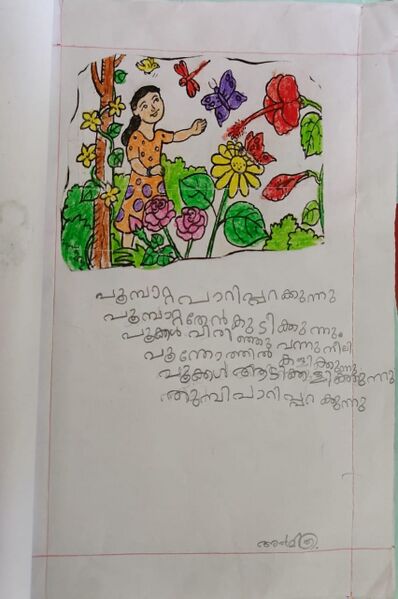 പൂമ്പാറ്റ പാറിപ്പറക്കുന്നു
പൂമ്പാറ്റ തേൻ കുടിക്കുന്നു.
പൂക്കൾ വിരിഞ്ഞു വന്നു നീലി
പൂന്തോത്തിൽ കളിക്കുന്നു
പൂക്കൾ ആടിക്കളിക്കുന്നു
തുമ്പി പാറിപ്പറക്കുന്നു